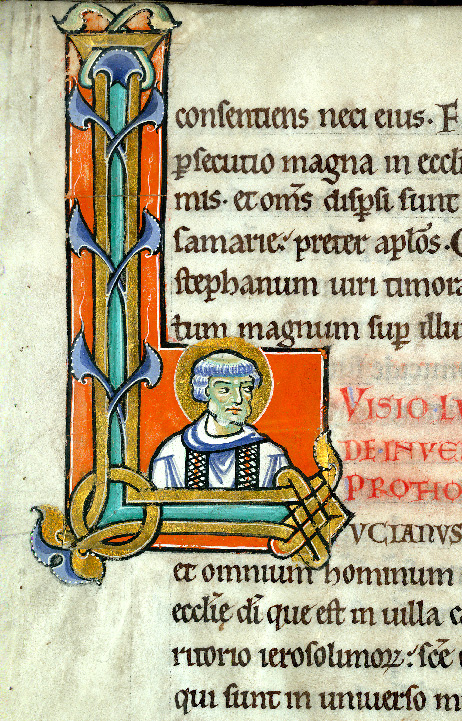 consentiens neci eius. F
ꝑsecutio magna in eccli
mis. et om̅s disꝑsi sunt
samarie: preter apl̅os. C
stephanum uiri timora
tum magnum suꝑ illu
VISIO LV
DE INVE
PROTHO
L
VCIANVS
et omnium hominum
eccl̅ię di̅ que est in uilla ca
ritorio ierosolimoꝝ: sc̅e e
qui sunt in uniuerso m